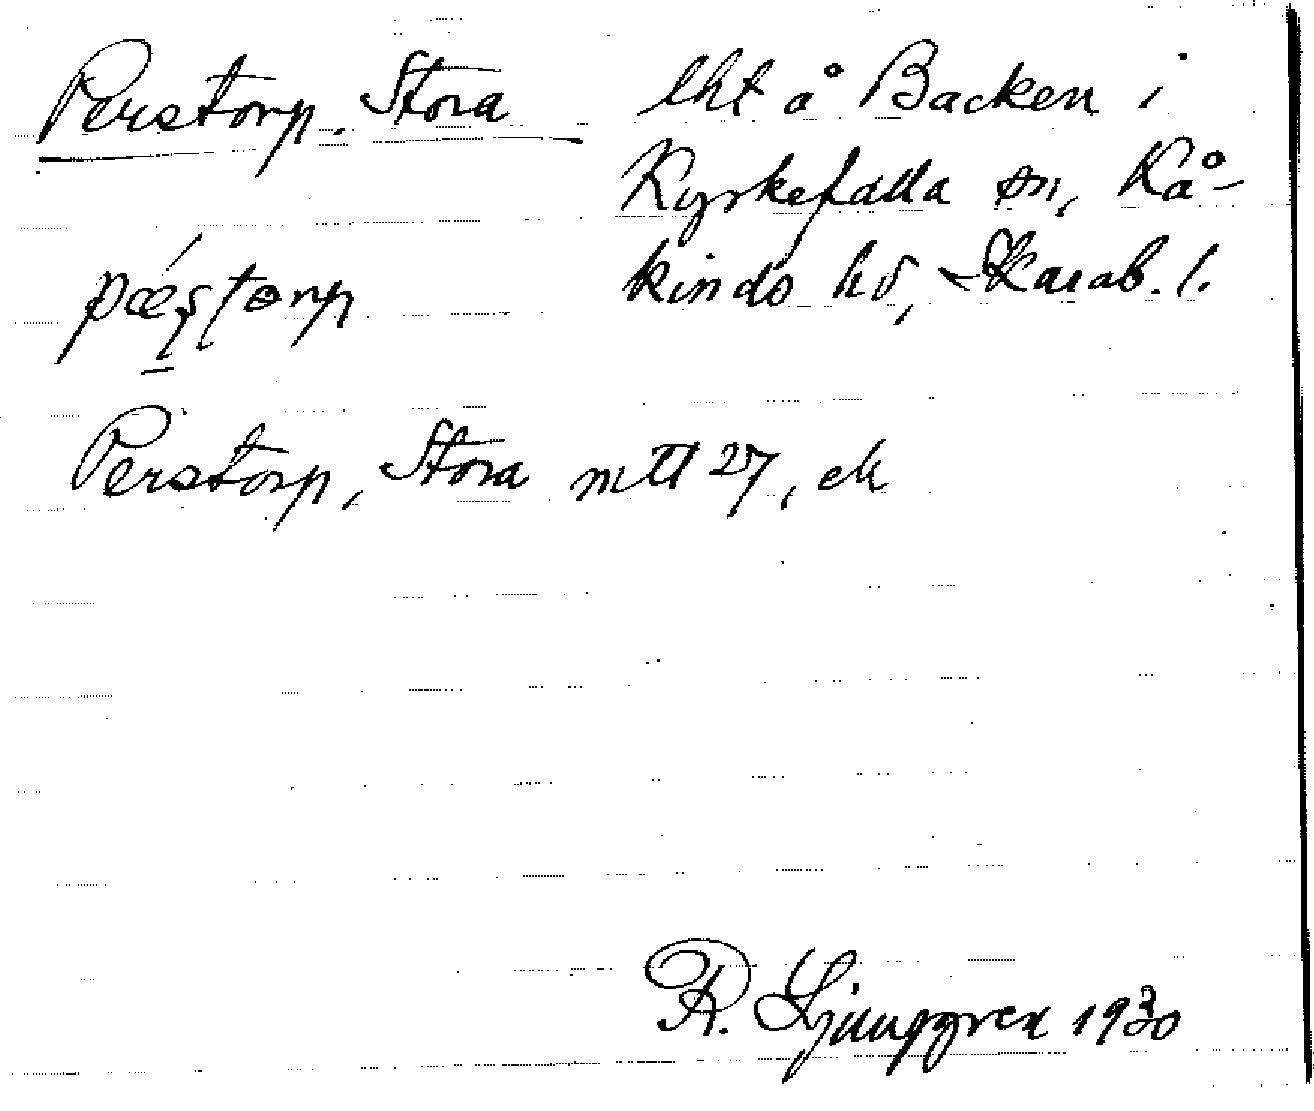 Perstorp. Stora
lht å Backen i
Kyrkefalla sn, Kå-
kinds hd, Skarab. l.
Perstorp, Stora mtl 27, ek
R. Ljunggren 1930